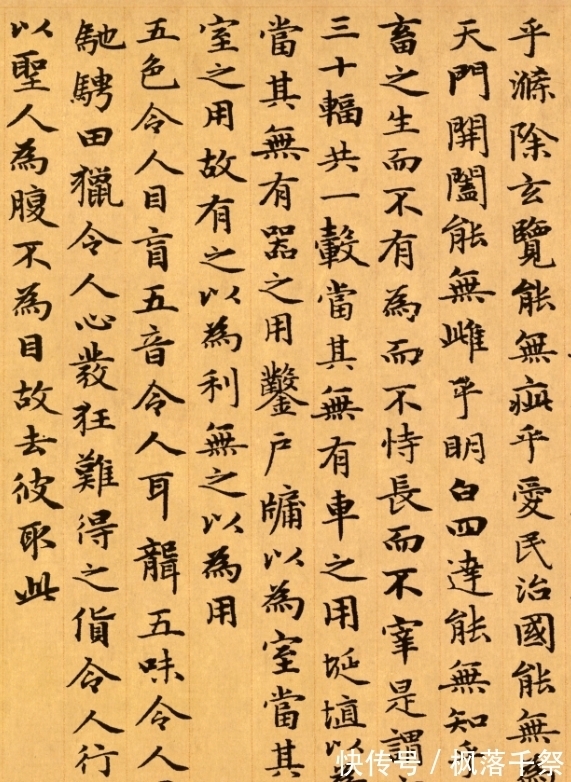 乎滌除玄覽能無疵乎愛民治國能無
天門開闔能無雌乎明白四達能無知
畜之生而不有為而不恃長而不宰是謂
三十輻共一轂當其無有車之用埏埴以
當其無有器之用鑿戶牖以為室當其
室之用故有之以為利無之以為用
五色令人目盲五音令人耳聾五味令人
馳騁田獵令人心發狂難得之貨令人行
以聖人為腹不為目故去彼取此
快传号 / 枫落千祭